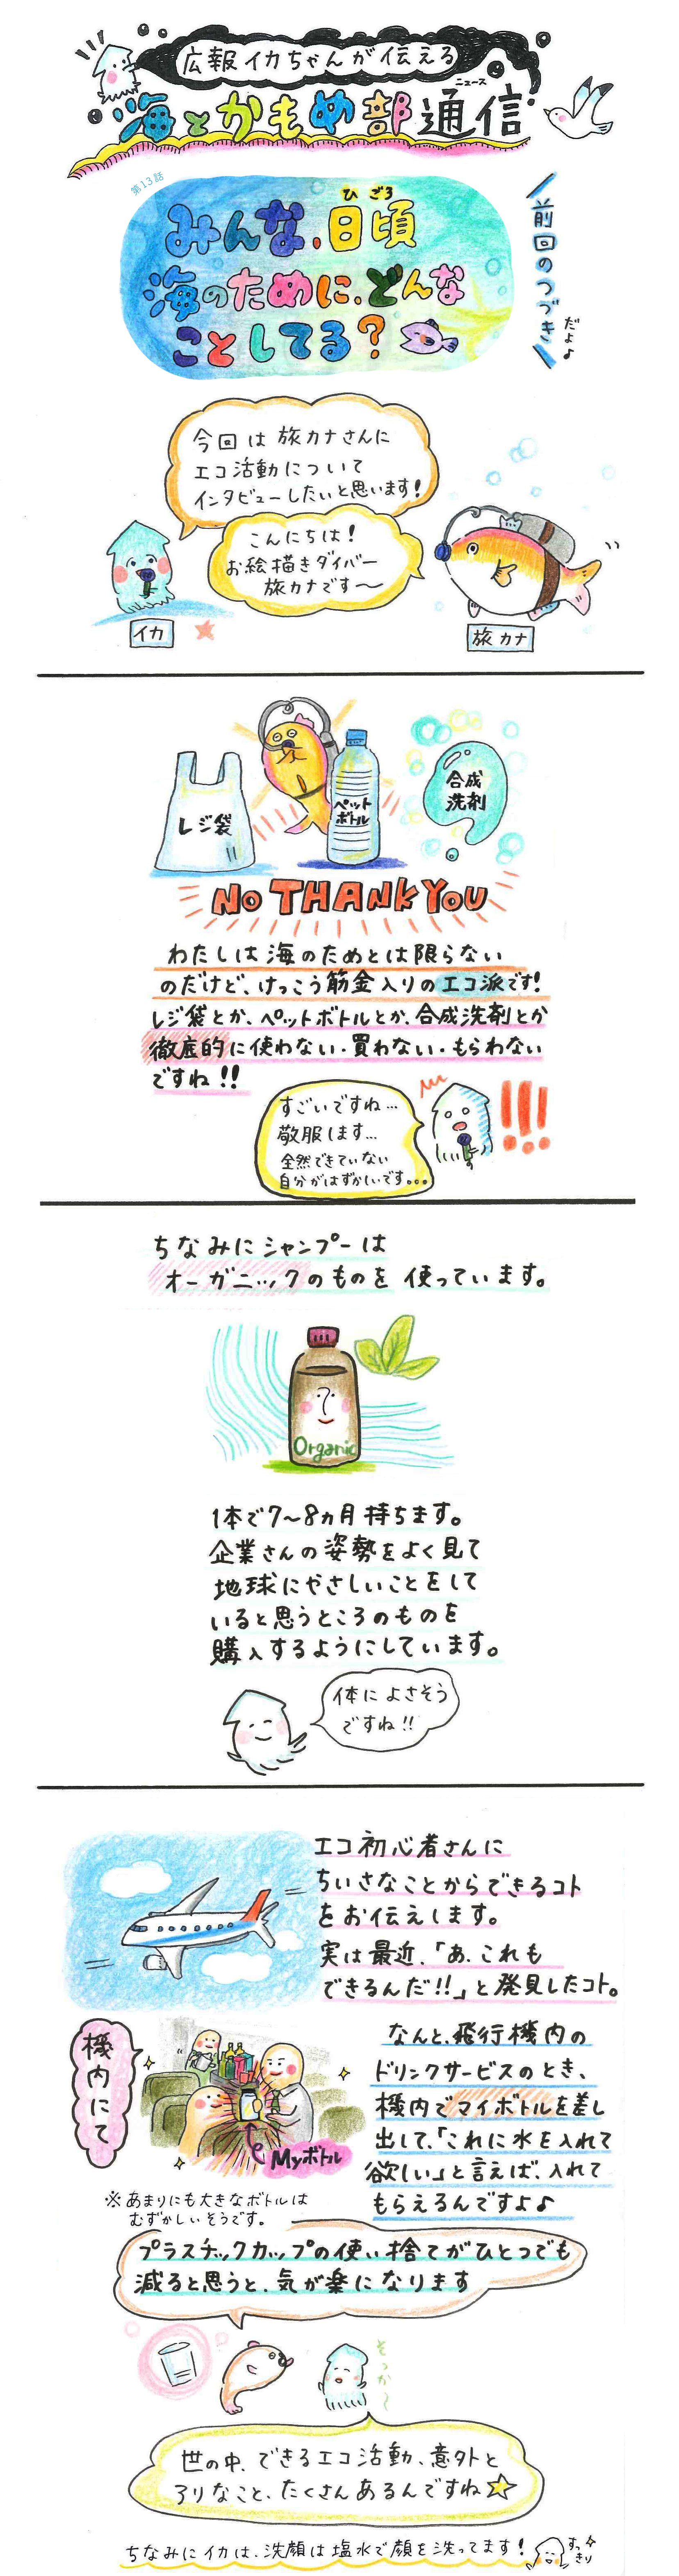 広報イカちゃんが伝える
ニュース
海とかもめ部通信
第13話
ひごろ
みんな、日頃
海のために、どんな
ことしてる?
前回のつづき
だよ♪
今回は旅カナさんに
エコ活動について
インタビューしたいと思います!
こんにちは!
お絵描きダイバー
旅カナです〜
イカ
旅カナ
レジ袋
ペット
ボトル
合成
洗剤
NO THANK YOU
わたしは海のためとは限らない
のだけど、けっこう筋金入りのエコ派です!
レジ袋とか、ペットボトルとか、合成洗剤とか
徹底的に使わない・買わない・もらわない
ですね!!
すごいですね…
敬服します…
全然できていない
自分がはずかしいです…
ちなみにシャンプーは
オーガニックのものを使っています。
Organic
1本で7〜8ヵ月持ちます。
企業さんの姿勢をよく見て
地球にやさしいことをして
いると思うところのものを
購入するようにしています。
体によさそう
ですね!!
エコ初心者さんに
ちいさなことからできるコト
をお伝えします。
実は最近、「あ、これも
できるんだ!!」と発見したコト。
機内にて
Myボトル
なんと、飛行機内の
ドリンクサービスのとき、
機内でマイボトルを差し
出して、「これに水を入れて
欲しい」と言えば、入れて
もらえるんですよ♪
※あまりにも大きなボトルは
むずかしいそうです。
プラスチックカップの使い捨てがひとつでも
減ると思うと、気が楽になります
そっか〜
世の中、できるエコ活動、意外と
アリなこと、たくさんあるんですね☆
ちなみにイカは、洗顔は塩水で顔を洗ってます!
すっきり